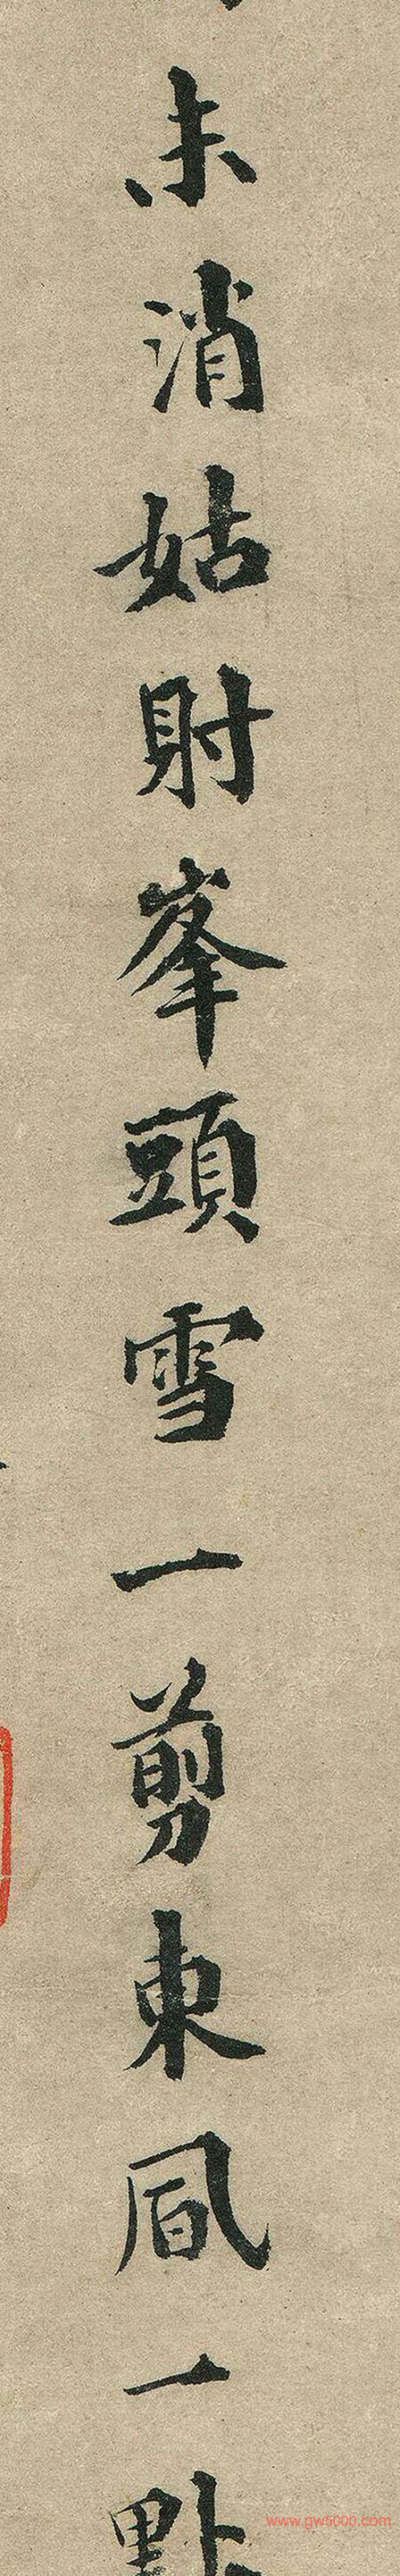 未消姑射峯頭雪一剪東風一點
www.gw5000.com